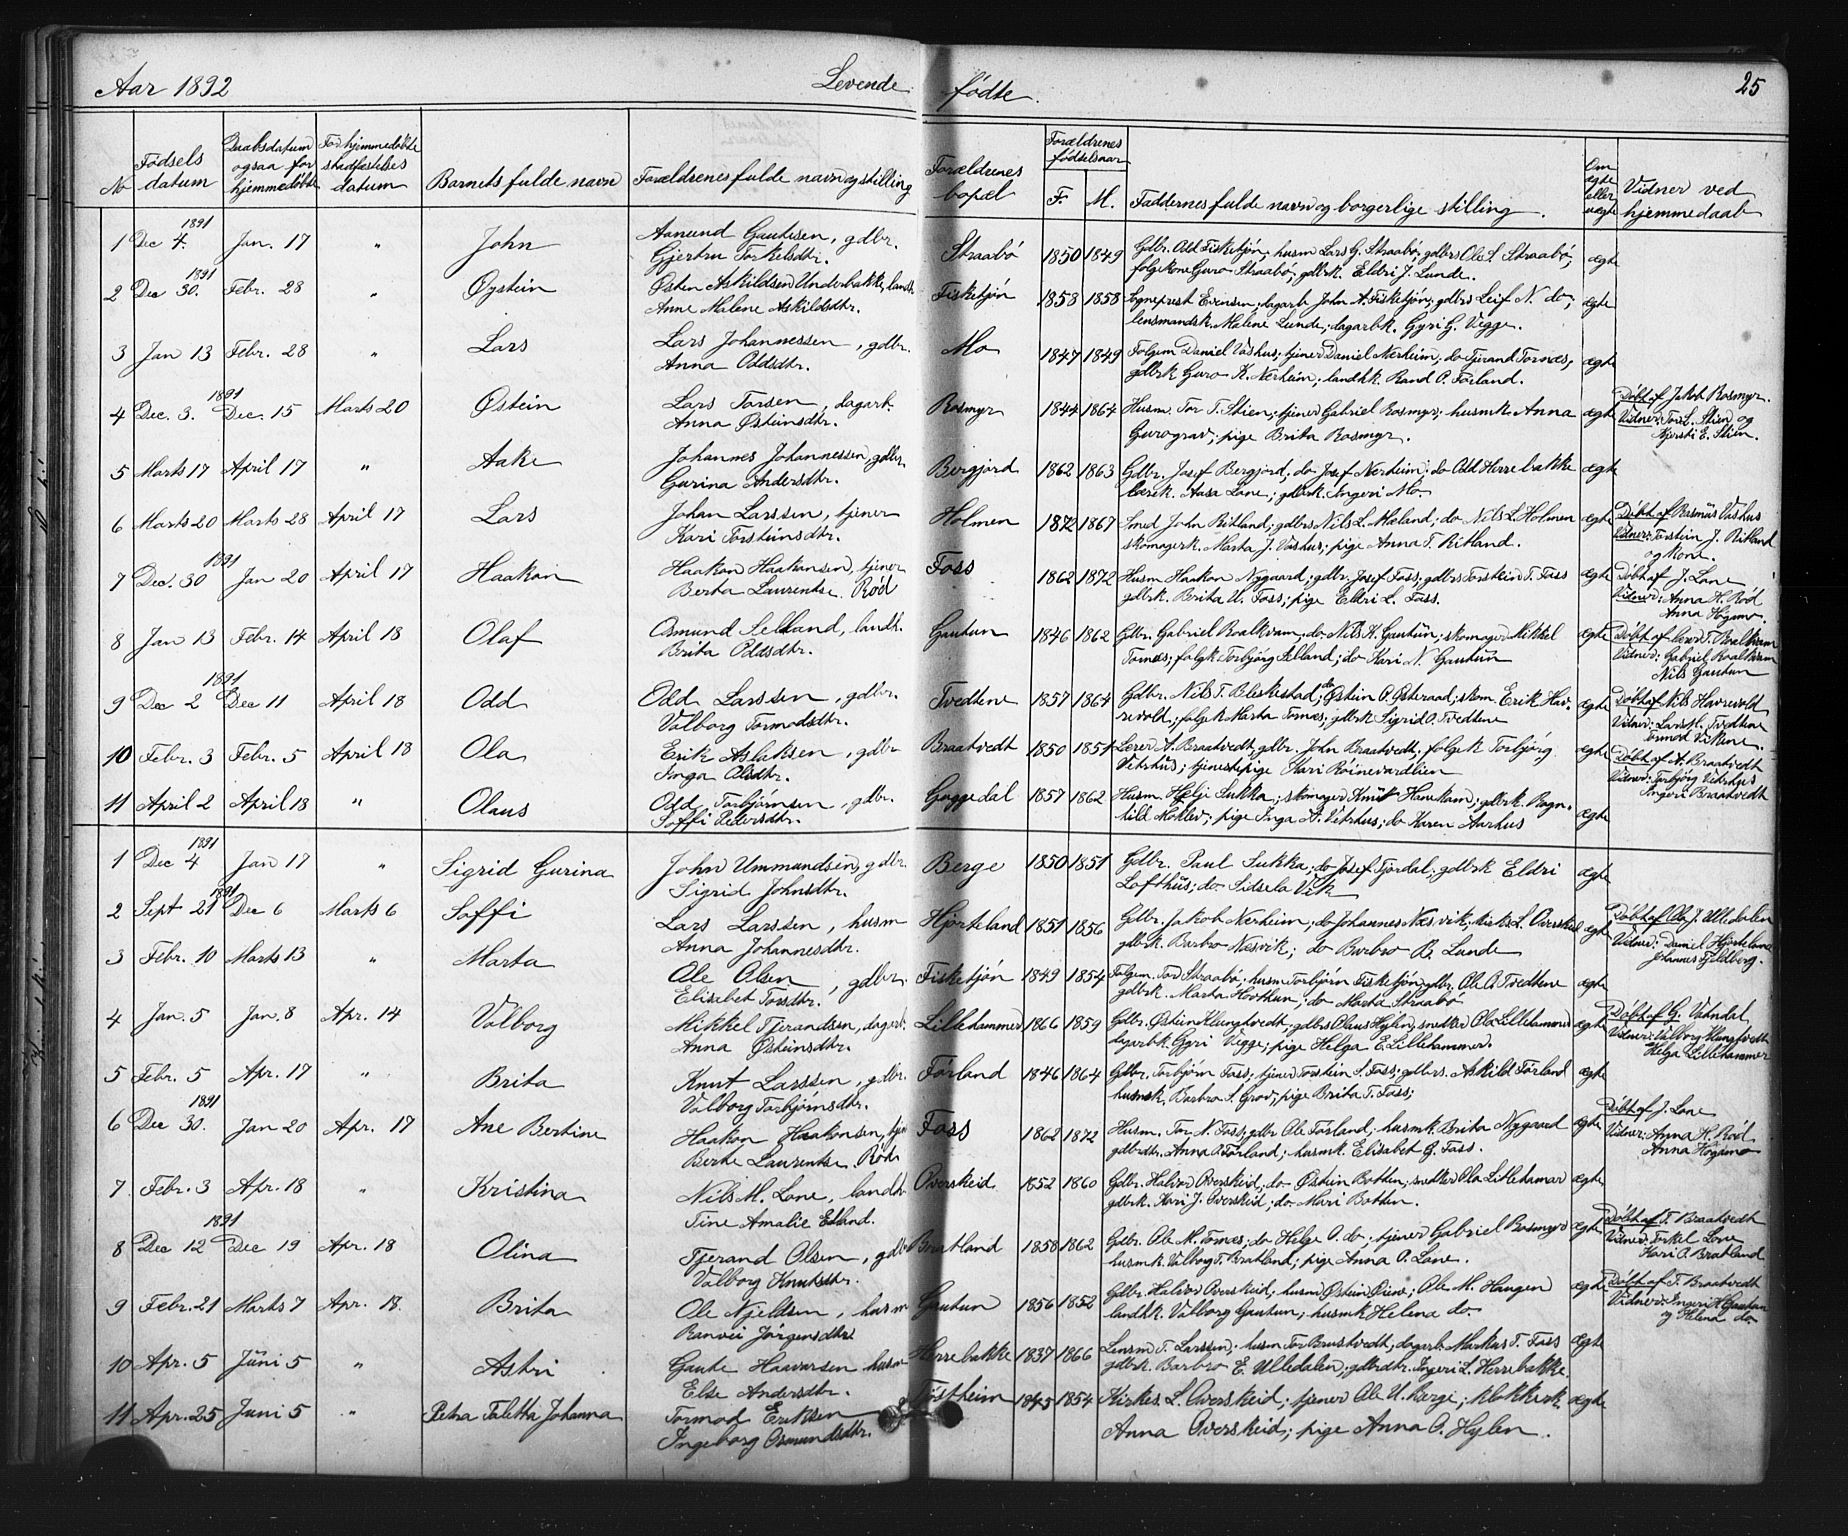 Aar 1892 Levende fødte. 25
No Fødsels datum Daabsdatum ogsaa for hjemmedøbte For hjemmedøbte stadfæstelses datum Barnets fulde navn Forældrenes fulde navn og stilling Forældrenes bopæl Forældrenes fødselsaar F. M. Faddernes fulde navn og borgerlige stilling. Om ægte eller uægte Vidner ved hjemmedaab
1 1891 Dec 4. Jan. 17 " John Aanund Gautesen, gdbr. Straabø 1850 1849 Gdbr. Odd Fisketjøn, husm Lars G. Straabø, gdbrs Ole S. Straabø, ægte
Gjertru Torkelsdtr. folgkone Guro Straabø, gdbrk. Eldri J. Lunde.
2 1891 Dec 30. Febr. 28 " Øystein Østen Askildsen Underbakke, landh. Fisketjøn 1858 1858 Sogneprest Evensen; dagarb John A. Fisketjøn; gdbrs Leif N. do; ægte
Anne Malene Askildsdtr. lensmandsk. Malene Lunde; dagarbk. Gyri G. Vegge.
3 Jan 13 Febr. 28 " Lars Lars Johannessen, gdbr. Mo 1847 1849 Folgem Daniel Vashus; tjener Daniel Nerheim; do Tjerand Tornes, ægte
Anna Oddsdtr. gdbrk Guro K. Nerheim; landhk. Rand O. Førland.
4 1891 Dec. 3. Dec. 15 Marts 20 Østein Lars Torsen, dagarb. Rosmyr 1844 1864 Husm. Tor T. Stien; tjener Gabriel Rosmyr; husmk. Anna ægte Døbt af Jakob Rosmyr.
Anna Østeinsdtr. Gurograv; pige Brita Rosmyr. Vidner: Tor L. Stien og
Kjersti E. Stien.
5 Marts 17 April 17 " Aake Johannes Johannessen, gdbr. Bergjord 1862 1863 Gdbr. Josef Bergjord, do Josef Nerheim; do Odd Herrebakke ægte
Gurina Andersdtr. lærerk. Aasa Lone; gdbrk. Ingeri Mo
6 Marts 20 Marts 28 April 17 Lars Johan Larssen, tjener Holmen 1872 1867 Smed John Ritland; gdbrs Nils L. Mæland; do Nils L. Holmen ægte Døbt af Rasmus Vashus
Kari Torsteinsdtr. skomagerk. Marta J. Vashus; pige Anna T. Ritland. Vidner: Torstein J. Ritland
og kone.
7 1891 Dec. 30 Jan 20 April 17 Haakon Haakon Haakonsen, tjener Foss 1862 1872 Husm Haakon Nygaard; gdbr. Josef Foss, gdbrs Torstein T. Foss ægte Døbt af J. Lone
Berta Laurentse. Rød gdbrk. Brita U. Foss; pige Eldri L. Foss. Vidner: Anna H. Rød
Anna Høgamo.
8 Jan 13 Febr. 14 April 18 Olaf Osmund Selland, landh. Gautun 1846 1862 Gdbr. Gabriel Roalkvam, do Nils K. Gautun; skomager Mikkel ægte Døbt af T. Roalkvam
Brita Oddsdtr. Tornes; folgk Torbjørg Selland; do Kari N. Gautun Vidner: Gabriel Roalkvam
Nils Gautun
9 1891 Dec 2 Dec 11 April 18 Odd Odd Larssen, gdbr. Tvedtene 1857 1864 Gdbr. Nils T. Bleskestad; do Østein O. Østeraad; skom. Erik Hav- ægte Døbt af Nils Havrevold
Valborg Tormodsdtr. revold; folgk Marta Tornes; gdbrk Sigrid O. Tvedtene Vidner: Lars M. Tvedtene
Tormod Vikene.
10 Febr. 3 Febr. 5 April 18 Ola Erik Aslaksen, gdbr Braatvedt 1850 1851 Lærer A. Braatvedt, gdbr. John Braatvedt, folgek Torbjørg ægte Døbt af A. Braatvedt
Inga Olsdtr. Vetrhus; tjenestepige Kari Røinevardlien Vidner: Torbjørg Vetrhus
Ingeri Braatvedt
11 April 2 April 18 " Olaus Odd Torbjørnsen, gdbr. Goggedal 1857 1862 Husm. Helje Sukka; skomager Knut Hamkam; gdbrk. Ragn- ægte
Soffi Pedersdtr. hild Moklev; pige Inga A. Vetrhus; do Karen Aarhus
1 1891 Dec 4 Jan 17 " Sigrid Gurina John Ummundsen, gdbr. Berge 1850 1851 Gdbr. Paul Sukka; do Josef Fjordal; gdbrk Eldri ægte
Sigrid Johnsdtr. Lofthus; do Sidsela Vik
2 1891 Sept 21 Dec 6 Marts 6 Soffi Lars Larssen, husm Hjorteland 1851 1856 Gdbr. Jakob Nerheim; do Johannes Næsvik; kirks L. Overskeid ægte Døbt af Ola J. Ulledalen
Anna Johannesdtr. gdbrk. Barbro Nesvik; do Barbro B. Lunde Vidner: Daniel Hjorteland
Johannes Fjeldberg.
3 Febr. 10 Marts 13 " Marta Ole Olsen, gdbr. Fisketjøn 1849 1854 Folgem. Tor Straabø; husm Torbjørn Fisketjøn gdbr. Ole O. Tvedtene ægte
Elisabet Torsdtr. gdbrk. Marta Hovthun; do Marta Straabø
4 Jan. 5 Jan. 8 Apr. 14 Valborg Mikkel Tjerandsen, dagarb. Lillehammer 1866 1859 Gdbr. Østein Klungtvedt; gdbrs Olaus Hylen, snedker Ola Lillehammer ægte Døbt af G. Vatndal
Anna Østeinsdtr. dagarbk. Gyri Vegge; pige Helga E. Lillehammer. Vidner: Valborg Klungtvedt
Helga Lillehammer
5 Febr. 5 Apr. 17 " Brita Knut Larssen, gdbr. Førland 1846 1864 Gdbr. Torbjørn Foss; tjener Torstein S. Foss; gdbrs. Askild Førland ægte
Valborg Torbjørnsdtr. husmk. Barbro S. Grov; pige Brita T. Foss;
6 1891 Dec 30. Jan 20 Apr. 17 Ane Bertine Haakon Haakonsen, tjen Foss 1862 1872 Husm. Tor N. Foss; gdbr Ole Førland; husmk. Brita Nygaard ægte Døbt af J. Lone
Berte Laurentse Rød gdbrdtr. Anna O. Førland; husmk. Elisabet G. Foss. Vidner: Anna H. Rød
Anna Høgamo
7 Febr. 3 Apr. 18 " Kristina Nils M. Lone, landh Overskeid 1852 1860 Gdbr. Halvor Overskeid; do Østein Botten; snedker Ola Lillehamar ægte
Tine Amalie Edland. gdbrk. Kari J. Overskeid; do. Mari Botten.
8 1891 Dec 12 Dec 19 Apr. 18 Olina Tjerand Olsen, gdbr Bratland 1858 1862 Gdbr. Ole M. Tornes; do Helge O. do; tjener Gabriel Rosmyr ægte Døbt af T. Braatvedt
Valborg Knutsdtr. husmk. Valborg T. Bratland; pige Anna O. Lone. Vidner: Torkel Lone
Kari O. Bratland
9 Febr. 21 Marts 7 Apr. 18. Brita Ole Njeldsen, husm Gautun 1856 1852 Gdbr. Halvor Overskeid, husm Østein Øiene; Ole M. Haugen ægte Døbt af T. Braatvedt
Ranvei Jørgensdtr landhk. Valborg Gautun; husmk Helena do Vidner: Ingeri H Gautun
og Helena do
10 Apr. 5 Juni 5 " Astri Gaute Haavarsen husm Herrebakke 1837 1866 Lensm T. Larssen; husm Tor Brustvedt, dagarb. Markus T. Foss ægte
Else Andersdtr. gdbrk. Barbro E. Ulledalen; gdbrdtr. Ingeri L. Herrebakke.
11 Apr. 25 Juni 5 " Petra Taletta Johanna Tormod Eriksen Tøstheim 1845 1854 Kirkes. L. Overskeid; tjener Ole U. Berge; klokkerk ægte
Ingeborg Osmundsdtr. Anna Overskeid; pige Anna O. Hylen.